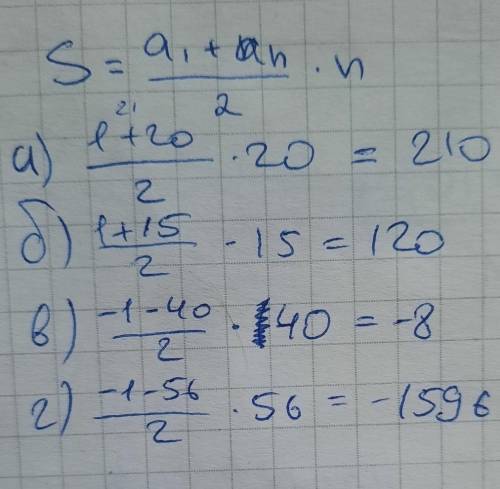 S = (a₁ + aₙ)/2 · n
21
а) (1+20)/2 · 20 = 210
б) (1+15)/2 - 15 = 120
в) (-1-40)/2 · 40 = -8
г) (-1-56)/2 · 56 = -1596